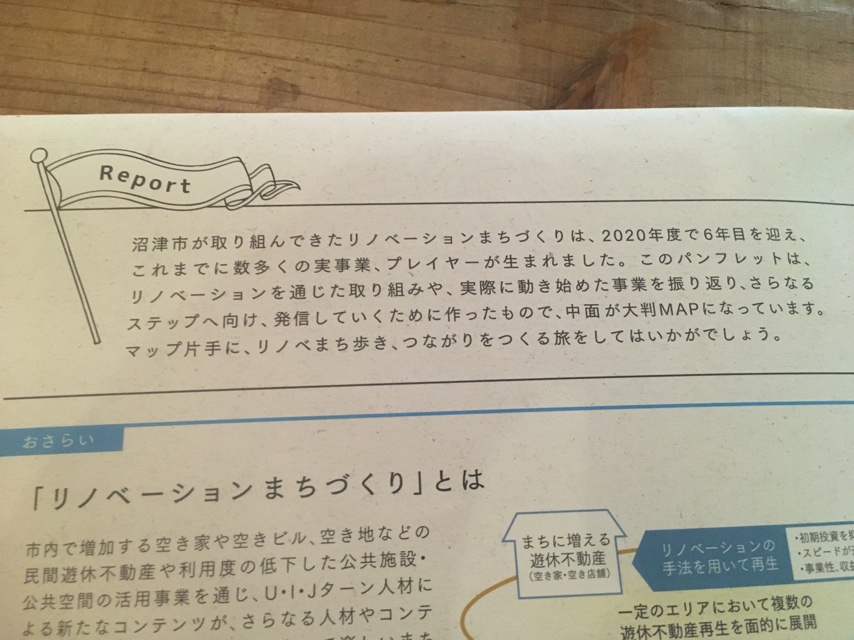 Report
沼津市が取り組んできたリノベーションまちづくりは、2020年度で6年目を迎え、
これまでに数多くの実事業、プレイヤーが生まれました。このパンフレットは、
リノベーションを通じた取り組みや、実際に動き始めた事業を振り返り、さらなる
ステップへ向け、発信していくために作ったもので、中面が大判MAPになっています。
マップ片手に、リノベまち歩き、つながりをつくる旅をしてはいかがでしょう。
おさらい
「リノベーションまちづくり」とは
市内で増加する空き家や空きビル、空き地などの
民間遊休不動産や利用度の低下した公共施設・
公共空間の活用事業を通じ、U・I・Jターン人材に
よる新たなコンテンツが、さらなる人材やコンテ
まちに増える
遊休不動産
(空き家・空き店舗)
リノベーションの
手法を用いて再生
・初期投資を
・スピードが
・事業性、収益
一定のエリアにおいて複数の
遊休不動産再生を面的に展開